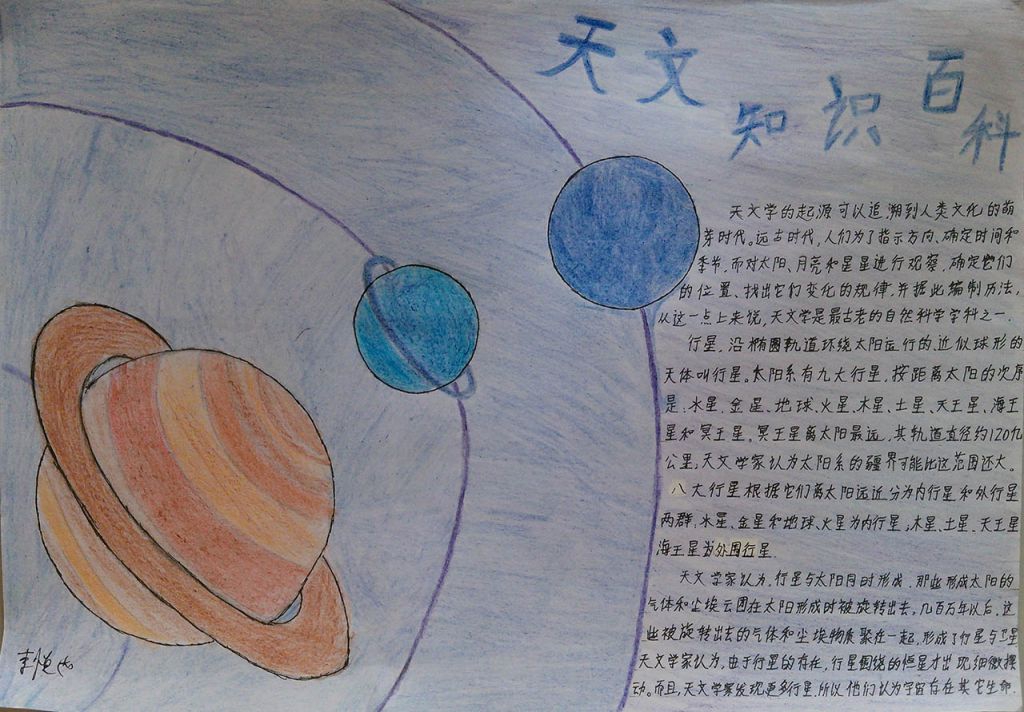 天文知识百科
天文学的起源可以追溯到人类文化的萌
芽时代。远古时代,人们为了指示方向、确定时间和
季节,而对太阳、月亮和星星进行观察,确定它们
的位置、找出它们变化的规律,并据此编制历法,
从这一点上来说,天文学是最古老的自然科学学科之一.
行星,沿椭圆轨道环绕太阳运行的、近似球形的
天体叫行星。太阳系有九大行星,按距离太阳的次序
是:水星、金星、地球、火星、木星、土星、天王星、海王
星和冥王星,冥王星离太阳最远,其轨道直径约120九
公里,天文学家认为太阳系的疆界可能比这范围还大。
八大行星根据它们离太阳远近分为内行星和外行星
两群,水星、金星和地球、火星为内行星;木星、土星、天王星
海王星为外围行星.
天文学家认为,行星与太阳同时形成.那些形成太阳的
气体和尘埃云团在太阳形成时被旋转出去,几百万年以后,这
些被旋转出去的气体和尘埃物质聚在一起,形成了行星与卫星
天文学家认为,由于行星的存在,行星围绕的恒星才出现细微摆
动。而且,天文学家发现更多行星.所以他们认为宇宙存在其它生命.